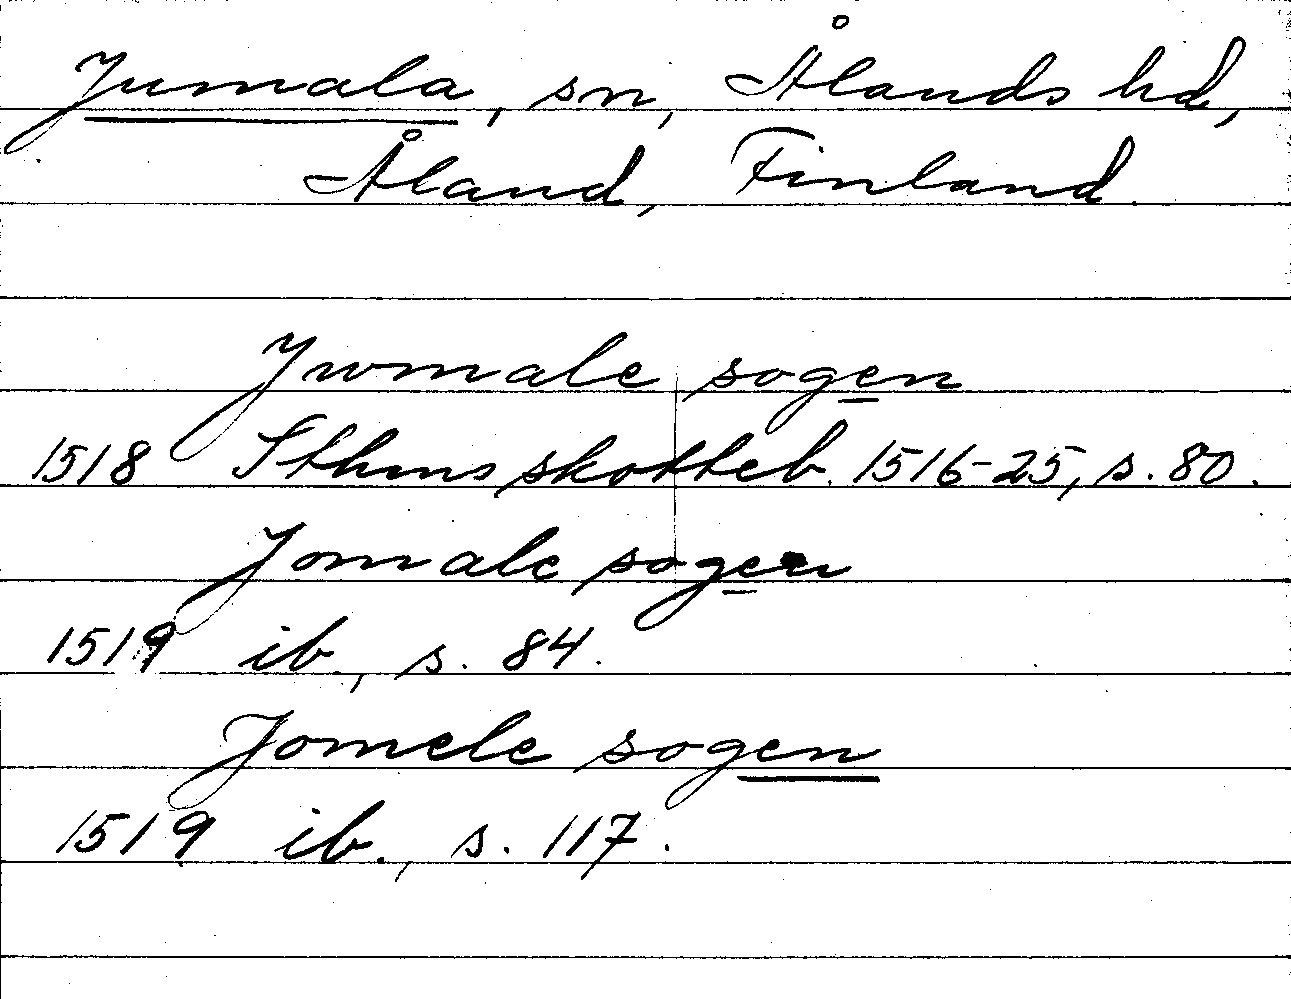 Jumala, sn, Ålands hd,
Åland, Finland.
Jwmale sogen
1518 Sthms skotteb. 1516-25, s. 80.
Jomale sogen
1519 ib., s. 84.
Jomele sogen
1519 ib., s. 117.